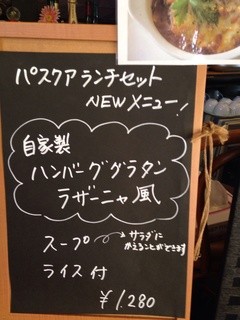 パスクアランチセット
NEWメニュー!
自家製
ハンバーググラタン
ラザーニャ風
スープ
サラダに
かえることができます
ライス付
¥1,280